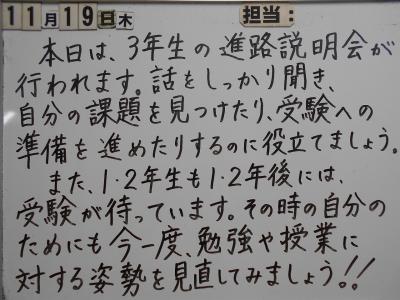 11月19日木 担当:
本日は、3年生の進路説明会が
行われます。話をしっかり聞き、
自分の課題を見つけたり、受験への
準備を進めたりするのに役立てましょう。
また、1・2年生も1・2年後には、
受験が待っています。その時の自分の
ためにも今一度、勉強や授業に
対する姿勢を見直してみましょう!!